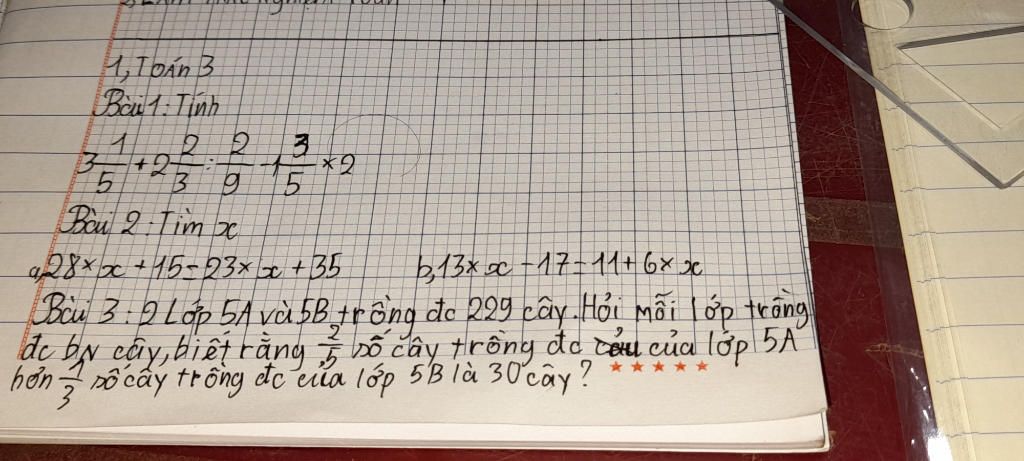 1, Toán 3
Bài 1: Tính
3 1/5 + 2 2/3 : 2/9 - 1 3/5 × 2
Bài 2: Tìm x
a, 28 × x + 15 = 23 × x + 35 b, 13 × x - 17 = 11 + 6 × x
Bài 3: 2 Lớp 5A và 5B trồng đc 229 cây. Hỏi mỗi lớp trồng
đc bN cây, biết rằng 2/5 số cây trồng đc của lớp 5A
hơn 1/3 số cây trồng đc của lớp 5B là 30 cây?